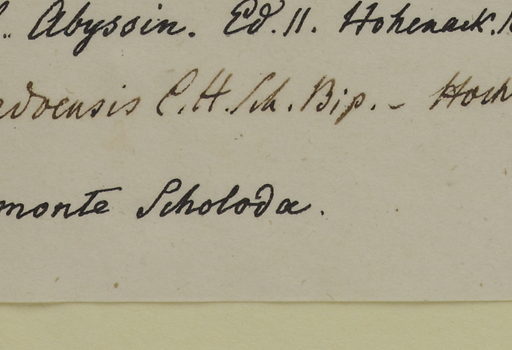 Abyssin. Ed. II. Hohenack.
C.H. Sch. Bip. - Hoch
monte Scholoda.